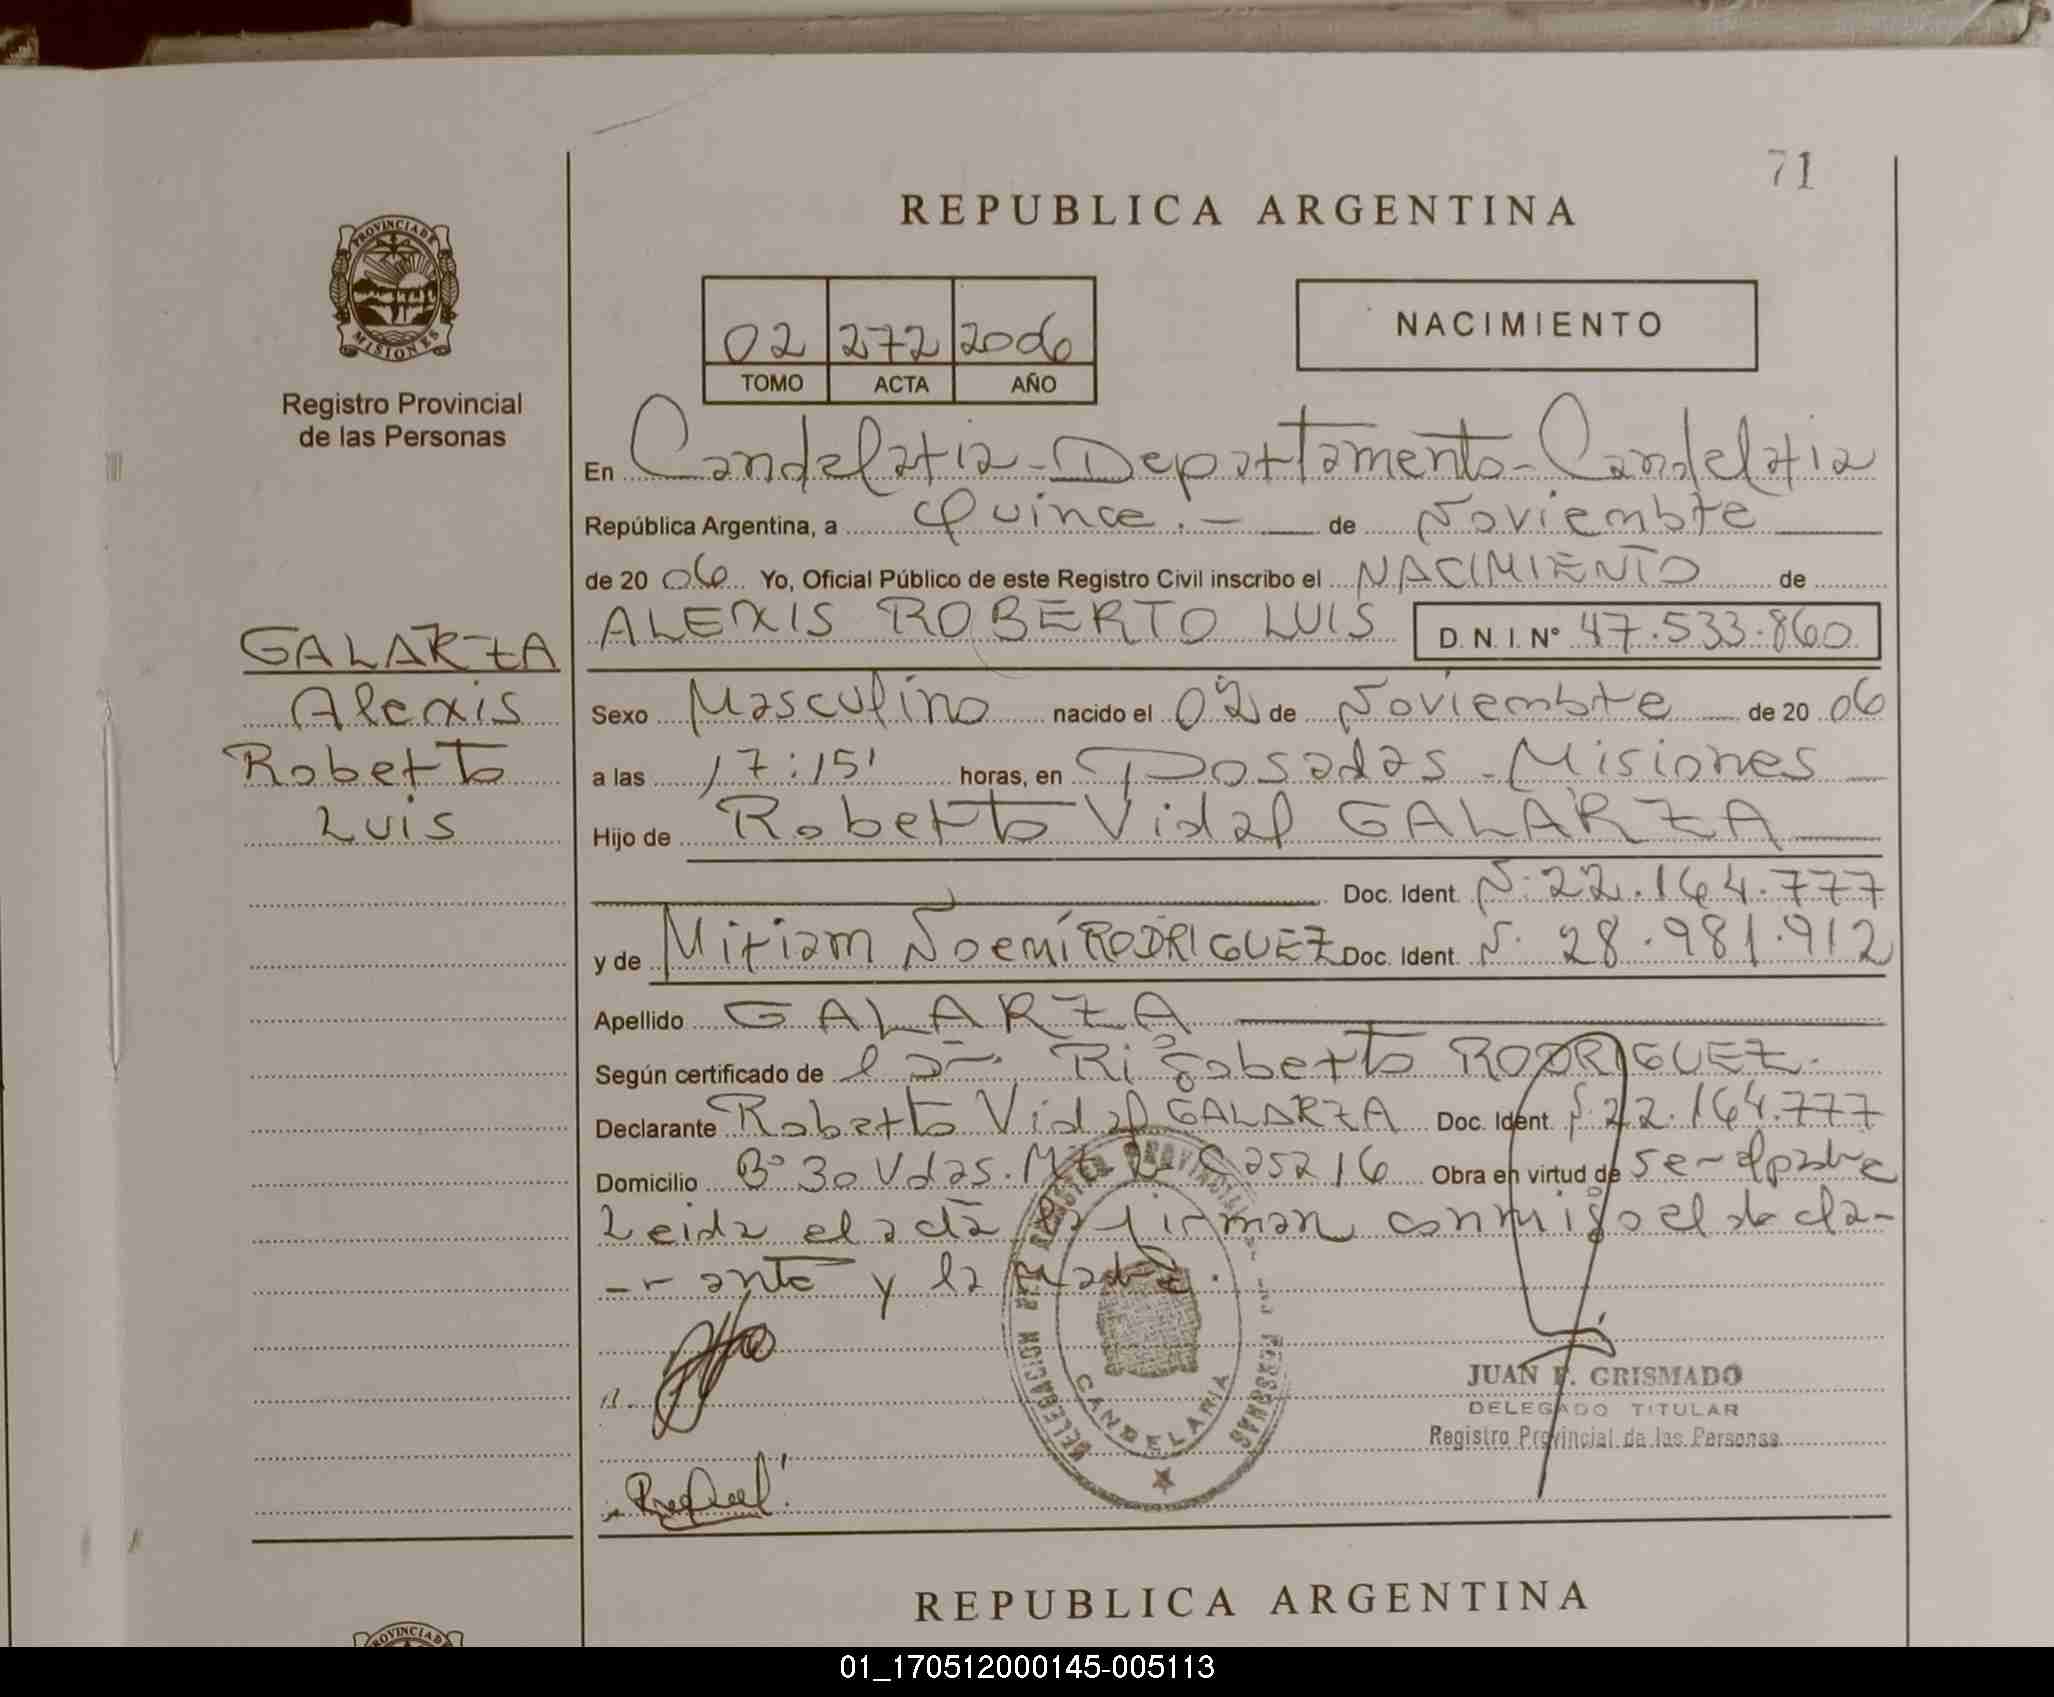 71
REPUBLICA ARGENTINA
PROVINCIA DE
MISIONES
Registro Provincial
de las Personas
02 272 2006
TOMO ACTA AÑO
NACIMIENTO
En Candelaria - Departamento - Candelaria
República Argentina, a Quince.- de Noviembre
de 20 06 Yo, Oficial Público de este Registro Civil inscribo el NACIMIENTO de
ALEXIS ROBERTO LUIS D. N. I. Nº 47.533.860
GALARZA
Alexis
Roberto
Luis
Sexo Masculino nacido el 02 de Noviembre de 20 06
a las 17:15' horas, en Posadas - Misiones
Hijo de Roberto Vidal GALARZA
Doc. Ident. N: 22.164.777
y de Miriam Noemí RODRIGUEZ Doc. Ident. N. 28.981.912
Apellido GALARZA
Según certificado de Rigoberto RODRIGUEZ.
Declarante Roberto Vidal GALARZA Doc. Ident. N. 22.164.777
Domicilio Bº 30 Vdas. Casa 16 Obra en virtud de ser el padre
Leida el acta la firman conmigo el decla-
-rante y la madre.
DELEGACION REGISTRO PROVINCIAL PERSONAS
CANDELARIA
JUAN F. GRISMADO
DELEGADO TITULAR
Registro Provincial de las Personas
REPUBLICA ARGENTINA
PROVINCIA DE
01_170512000145-005113